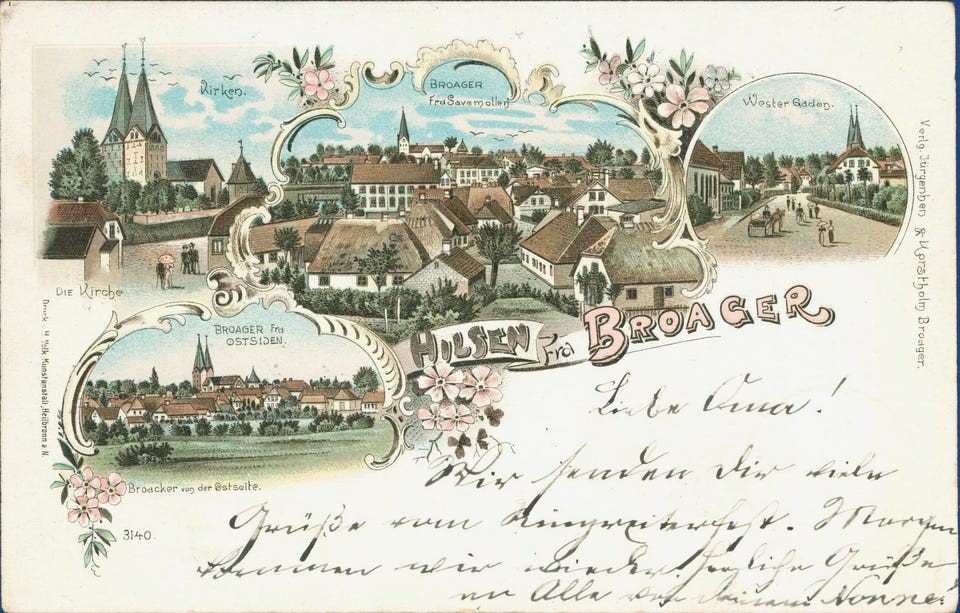 Kirken.
Die Kirche
BROAGER
Fra Savemollen
Wester Gaden.
BROAGER Fra
OSTSIDEN.
Broacker von der Ostseite.
3140.
HILSEN Fra BROAGER
Verlg. Jürgensen & Korstholm Broager.
Druck H. Volk, Kunstanstalt, Heilbronn a. N.
Liebe Oma!
Wir senden Dir viele
Grüße vom Ringreiterfest. Morgen
kommen wir wieder. Herzliche Grüße
an Alle von Deinem